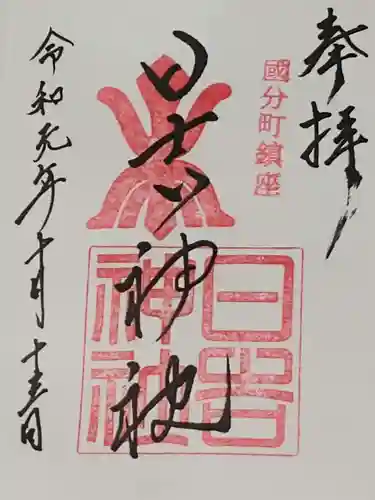 奉拝
國分町鎮座
日吉神社
日吉神社
令和元年十月十三日